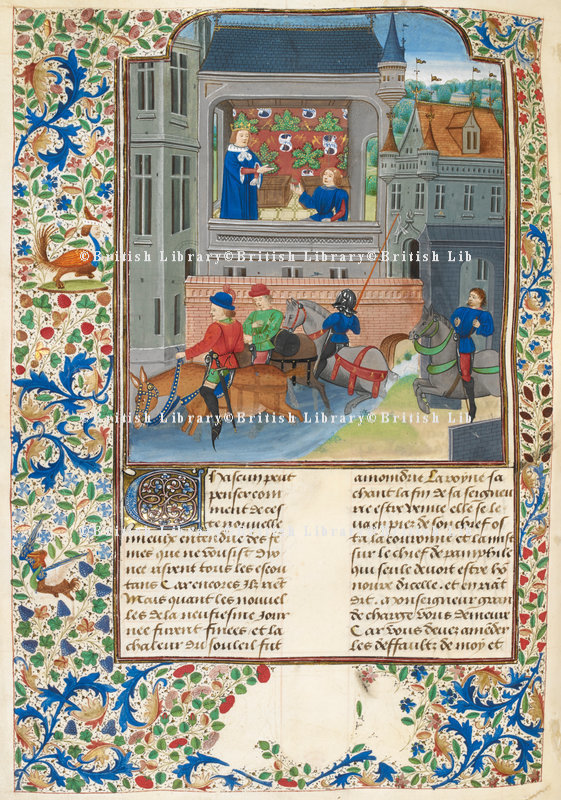 ©British Library©British Library©British Lib
British Library©British Library©British Lib
Chascun peut
penser com
ment de ces
te nouvelle
mieux entendue des fe
mes que ne voulsist dyo
nee rirent tous les escou
tans Car encores ilz rient
Mais quant les nouvel
les de la neufiesme jour
nee furent finees et la
chaleur du souleil fut
amoindrie La royne sa
chant la fin de sa seigneu
rie estre venue elle se le
va en piez de son chief os
ta la couronne et la mist
sur le chief de pamphile
qui seule devoit estre ho
noure dicelle. et en riant
dit. Monseigneur gran
de charge vous demeure
Car vous devez amender
les deffaultz de moy et